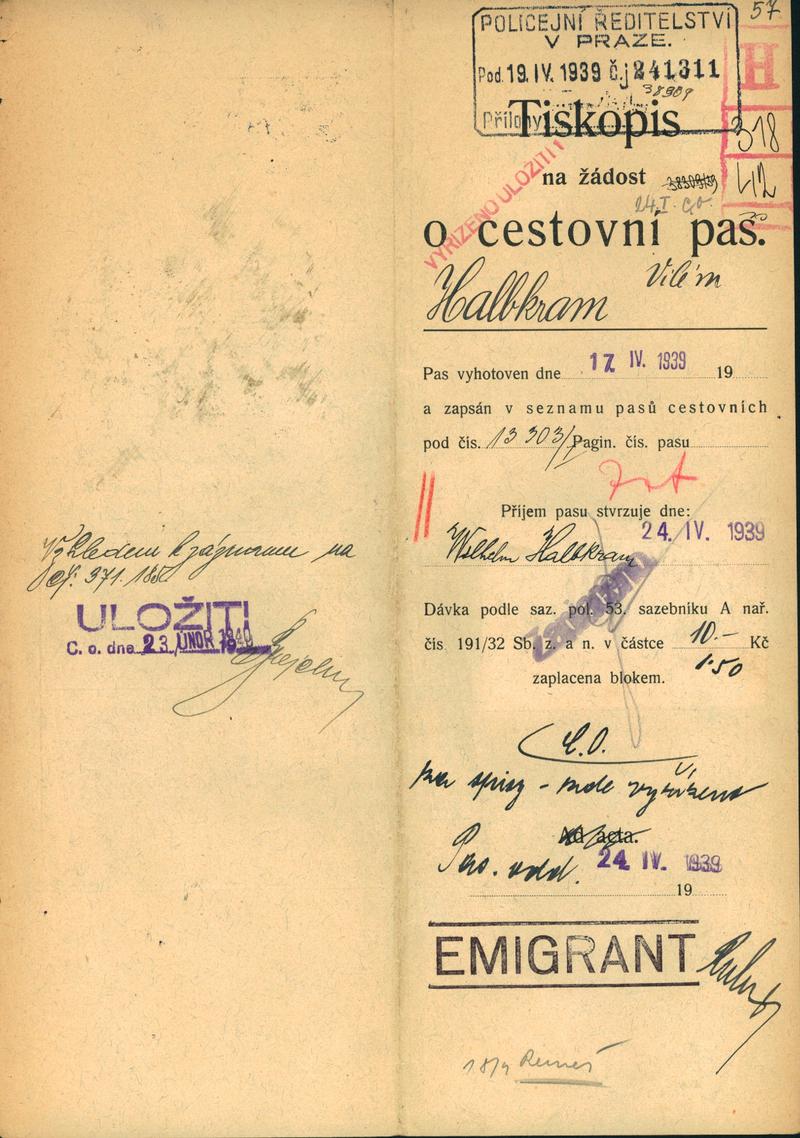 57
POLICEJNÍ ŘEDITELSTVÍ
V PRAZE.
Pod. 19. IV. 1939 Č.j 241311
38909
Přílohy
H
318
42
Tiskopis
na žádost
VYŘÍZENO ULOŽITI!
o cestovní pas.
Vilém
Halbkram
Pas vyhotoven dne 17. IV. 1939 19
a zapsán v seznamu pasů cestovních
pod čís. 13 303/ Pagin. čís. pasu
Příjem pasu stvrzuje dne:
24. IV. 1939
Wilhelm Halbkram
Dávka podle saz. pol. 53. sazebníku A nař.
čís. 191/32 Sb. z. a n. v částce 10.- Kč
1·50
zaplacena blokem.
Vzhledem k záznamu na
ULOŽITI
C. o. dne 23. ÚNOR 1940
C. O.
spisy - vyřízeno
Ad acta.
Pas. odd. 24. IV. 1939
19
EMIGRANT